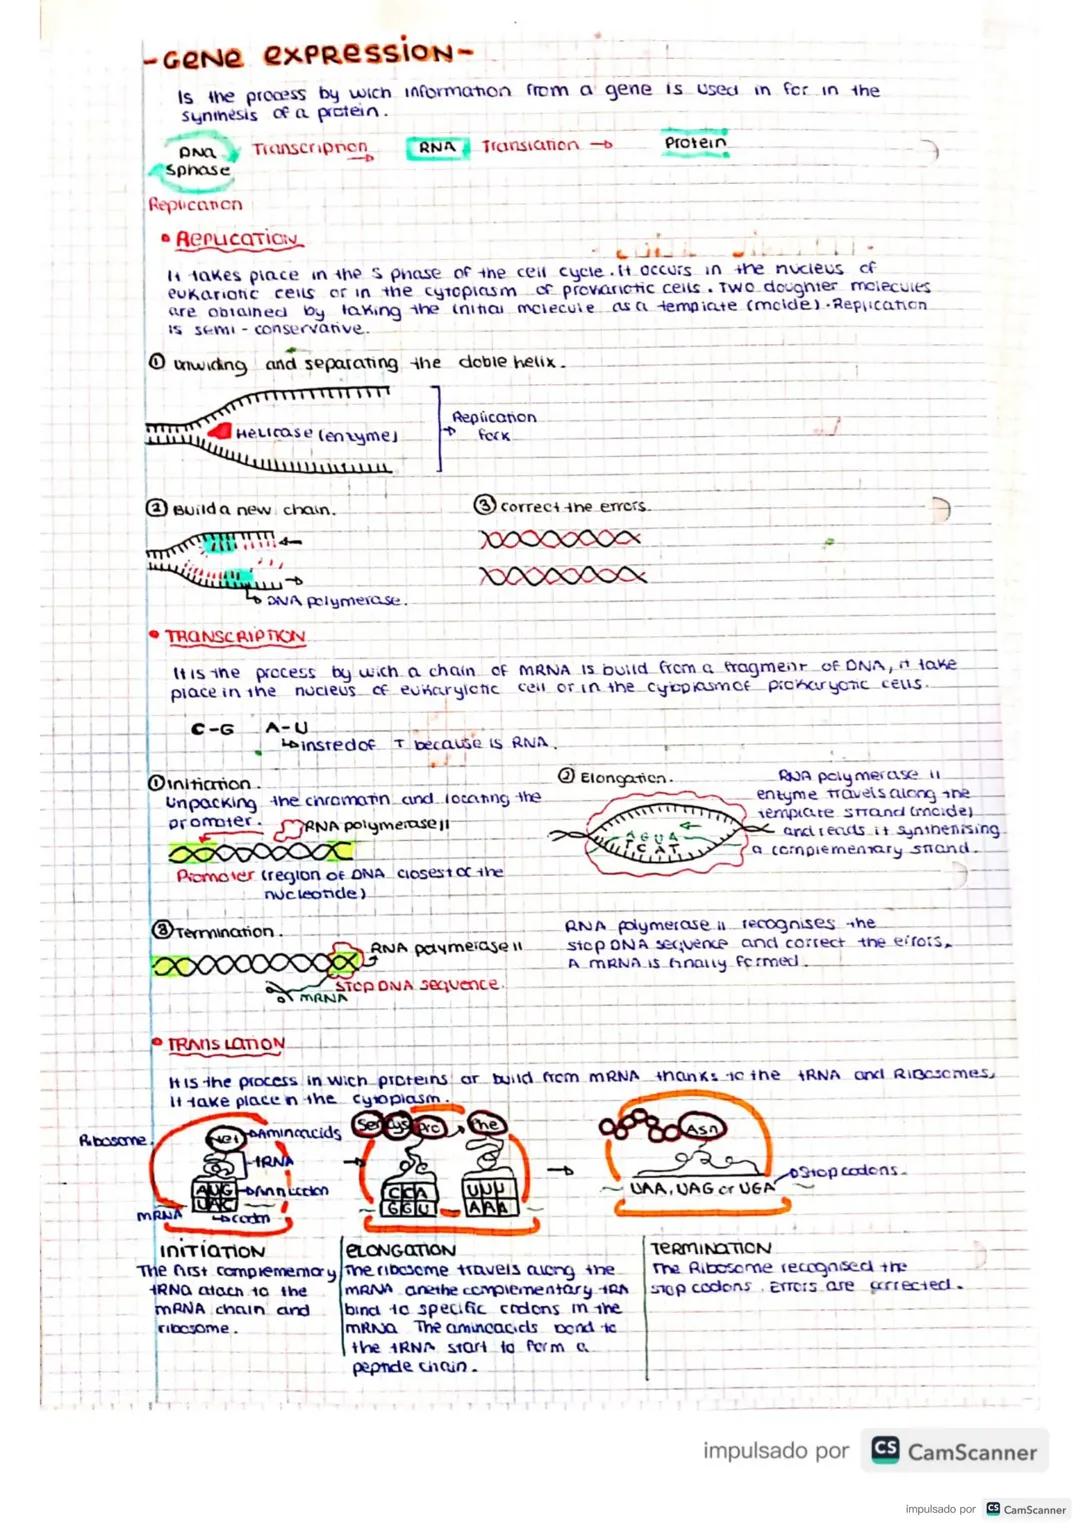 -GENE EXPRESSION-
Is the process by wich information from a gene is used in for in the
synthesis of a protein.
DNA Transcription RNA Translation Protein
Sphase
Replication
• REPLICATION
It takes place in the S phase of the cell cycle. It occurs in the nucleus of
eukariotic cells or in the cytoplasm of provariotic cells. Two doughter molecules
are obtained by taking the initial molecule as a template (molde). Replication
is semi-conservative.
① unwiding and separating the doble helix.
Helicase (enzyme)
Replication
fork
② Build a new chain. ③ correct the errors.
DNA polymerase.
• TRANSCRIPTION
It is the process by wich a chain of mRNA is build from a fragment of DNA, it take
place in the nucleus of eukaryiotic cell or in the cytoplasm of prokaryotic cells.
C-G A-U
insted of T because is RNA.
① Initiation.
Unpacking the chromatin and locating the
promoter.
RNA polymerase II
Promoter (region of DNA closest of the
nucleotide)
② Elongation.
RNA polymerase II
enzyme travels along the
template strand (molde)
and reads it synthenising
a complementary strand.
A G U A
T C A T
③ Termination.
RNA polymerase II
STOP DNA sequence.
mRNA
RNA polymerase II recognises the
stop DNA sequence and correct the errors.
A mRNA is finally formed.
• TRANSLATION
It is the process in wich proteins ar build from mRNA thanks to the tRNA and Ribosomes,
It take place n the cytoplasm.
Ribosome.
Met
Aminoacids
tRNA
AUG
UAC
codon
mRNA
Ser Cys Pro Phe
CCA UUU
GGU AAA
Asn
UAA, UAG or UGA
Stop codons.
INITIATION
The first complememory
tRNA atach to the
mRNA chain and
ribosome.
ELONGATION
The ribosome travels along the
mRNA anethe complementary tRA
bind to specific codons in the
mRNA The aminoacids bond to
the tRNA start to form a
peptide chain.
TERMINATION
The Ribosome recognised the
stop codons. Errors are corrected.
impulsado por CS CamScanner
impulsado por CS CamScanner